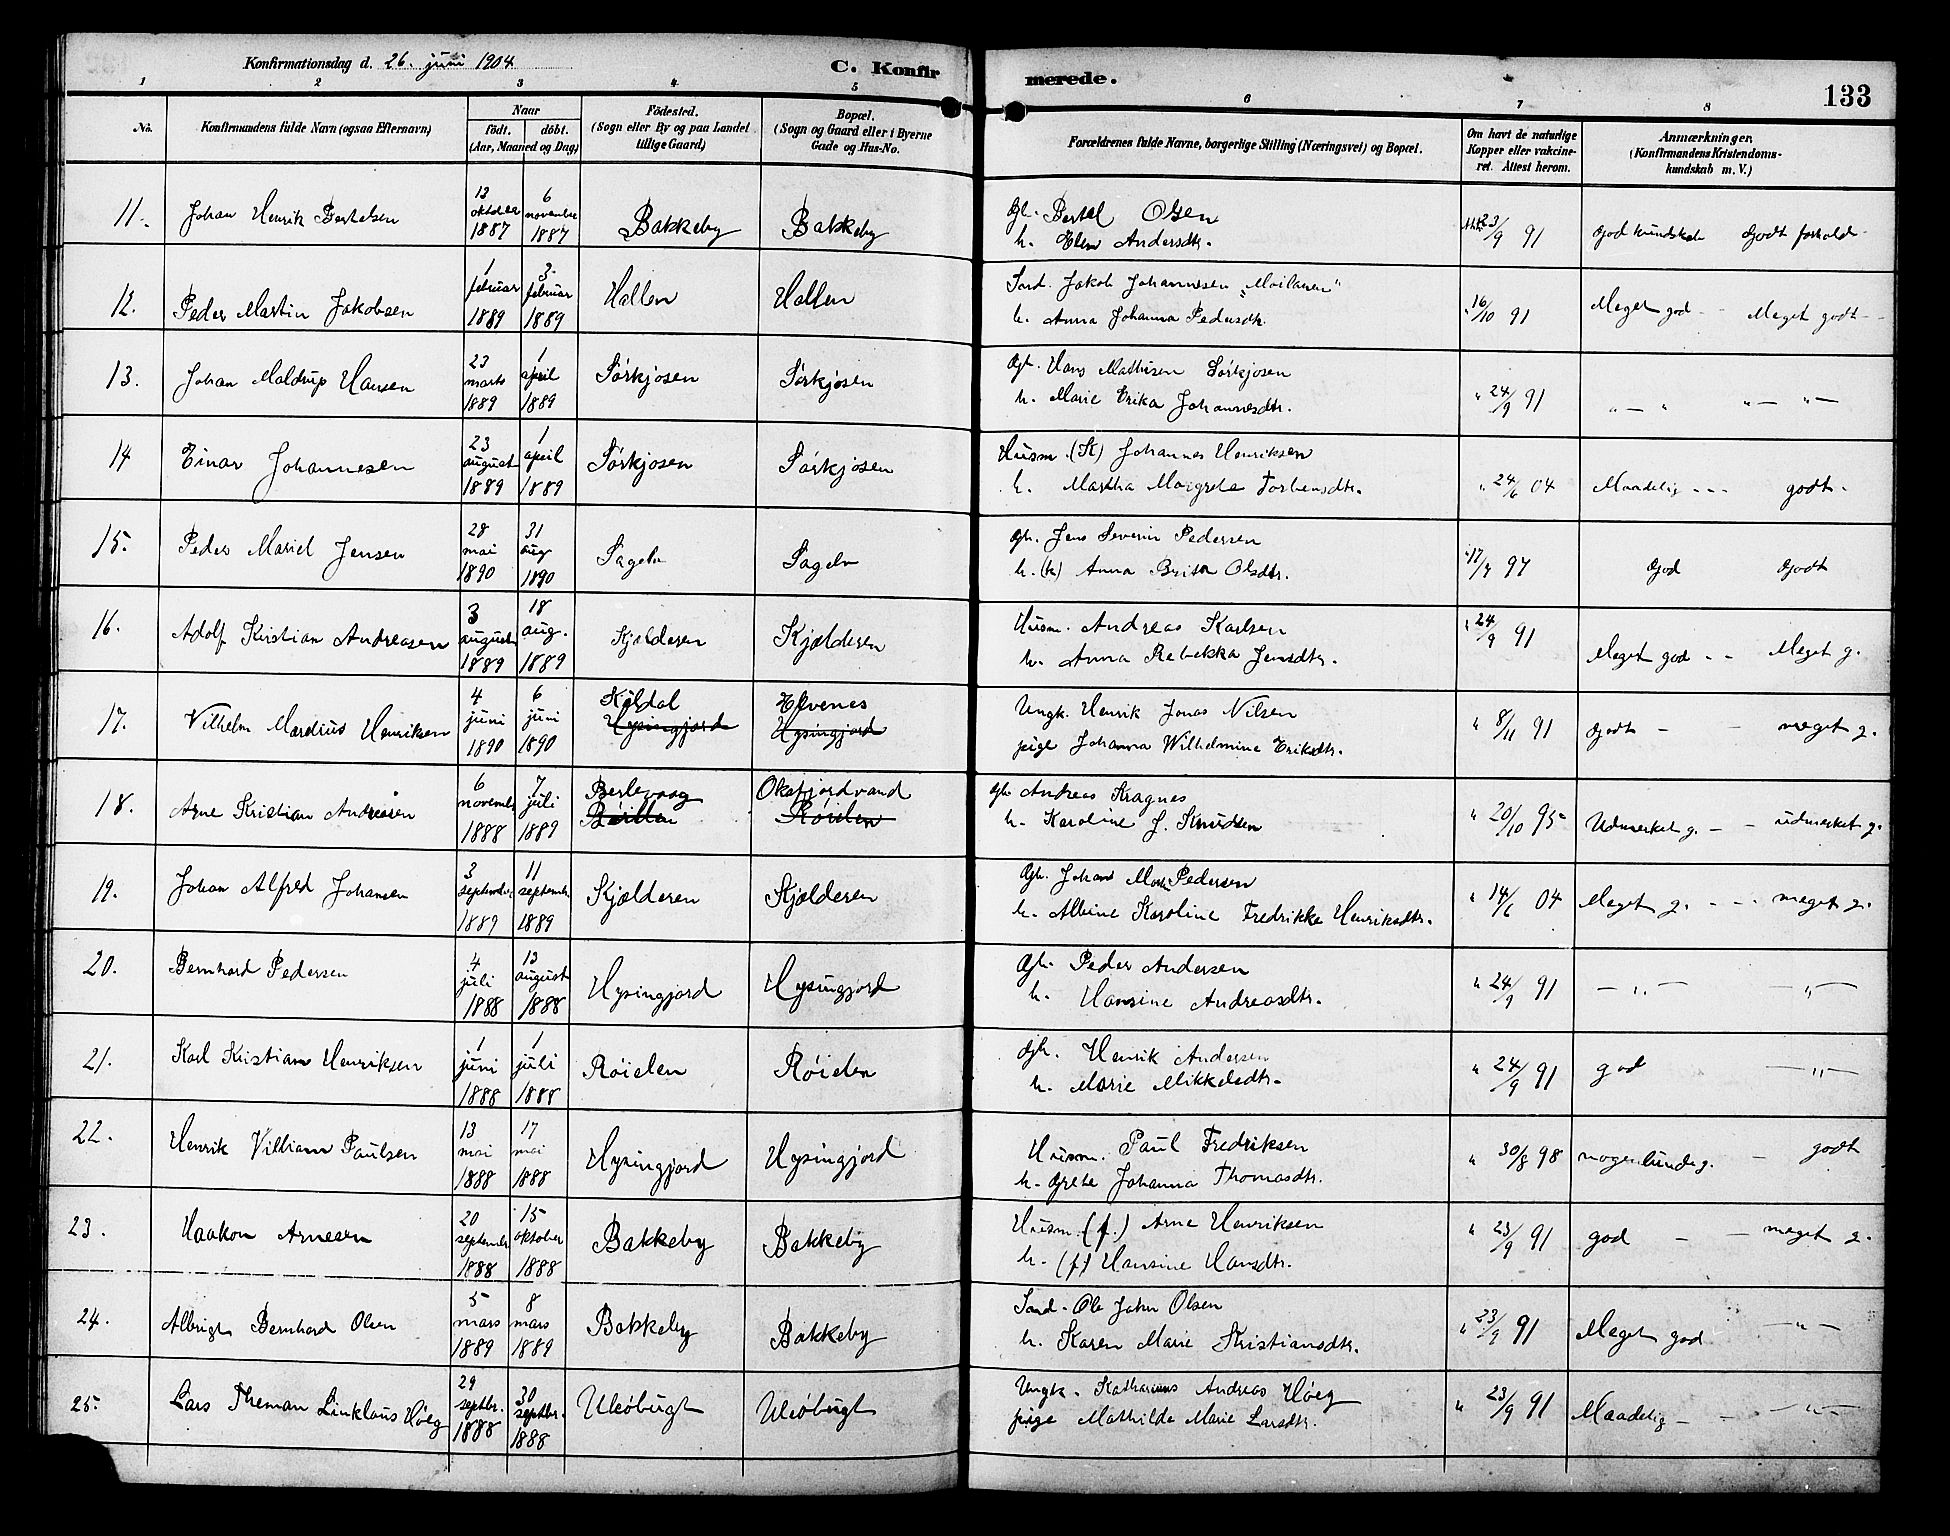 Konfirmationsdag d. 26. juni 1904
C. Konfirmerede.
133
1 2 3 4 5 6 7 8
No.
Konfirmandens fulde Navn (ogsaa Efternavn)
Naar
født. døbt.
(Aar, Maaned og Dag)
Fødested.
(Sogn eller By og paa Landet
tillige Gaard)
Bopæl.
(Sogn og Gaard eller i Byerne
Gade og Hus-No.
Forældrenes fulde Navne, borgerlige Stilling (Næringsvei) og Bopæl.
Om havt de naturlige
Kopper eller vakcine-
ret. Attest herom.
Anmærkninger.
(Konfirmandens Kristendoms-
kundskab m. V.)
11. Johan Henrik Bertelsen 13 oktober 1887 6 novembre 1887 Bakkeby Bakkeby
Gbr. Bertel Olsen
h. Elen Andersdtr. 23/9 91 God kundskab Godt forhold
12. Peder Martin Jakobsen 1 februar 1889 3. februar 1889 Hallen Hallen
Ind. Jakob Johannesen "Moilanen"
h. Anna Johanna Pedersdtr. " 16/10 91 Meget god - - Meget godt -
13. Johan Maldrup Hansen 23 marts 1889 1 april 1889 Sørkjosen Sørkjosen
Gbr. Hans Mathisen Sørkjosen
h. Marie Erika Johannesdtr. " 24/9 91 " — " " — " —
14 Einar Johannesen 23 august 1889 1 april 1889 Sørkjosen Sørkjosen
Husm. (K) Johannes Henriksen
h. Martha Margrete Torbensdtr. " 24/6 04 Maadelig - - - godt -
15. Peder Mariel Jensen 28 mai 1890 31 aug 1890 Sagelv Sagelv
Gbr. Jens Severin Pedersen
h. (k) Anna Brita Olsdtr. " 17/7 97 God Godt
16. Adolf Kristian Andreasen 3 august 1889 18 aug. 1889 Kjælderen Kjælderen
Husm. Andreas Karlsen
h. Anna Rebekka Jensdtr. " 24/9 91 Meget god - - Meget g.
17. Vilhelm Mardius Henriksen 4 juni 1890 6 juni 1890 Kåldal Hysingjord Elvenes Hysingjord
Ungk. Henrik Jonas Nilsen
pige Johanna Wilhelmine Eriksdtr. " 8/11 91 Godt - - meget g.
18. Arne Kristian Andreasen 6 novembr 1888 7 juli 1889 Berlevaag Oksfjordvand Røielen
Gbr Andreas Kragnes
h. Karoline J. Knudsen " 20/10 95 Udmerket g. - - udmerket g.
19. Johan Alfred Johansen 3 september 1889 11 septembr 1889 Kjælderen Kjælderen
Gbr. Johan Mark Pedersen
h. Albine Karoline Fredrikke Henriksdtr. " 14/6 04 Meget g. - - - meget g.
20. Bernhard Pedersen 4 juli 1888 13 august 1888 Hysingjord Hysingjord
Gbr. Peder Andersen
h. Hansine Andreasdtr. " 24/9 91 — " — — " —
21. Karl Kristian Henriksen 1 juni 1888 1 juli 1888 Røielen Røielen
Gbr. Henrik Andersen
h. Marie Mikkelsdtr. " 24/9 91 god — " —
22. Henrik Villiam Paulsen 13 mai 1888 17 mai 1888 Hysingjord Hysingjord
Husm. Paul Fredriksen
h. Grete Johanna Thomasdtr. " 30/8 98 nogenlunde g. - godt
23. Haakon Arnesen 20 septembr 1888 15 oktober 1888 Bakkeby Bakkeby
Husm. (f.) Arne Henriksen
h. (f) Hansine Hansdtr. " 23/9 91 god - - meget g.
24. Albrigt Bernhard Olsen 5 mars 1889 8 mars 1889 Bakkeby Bakkeby
Ind. Ole John Olsen
h. Karen Marie Kristiansdtr. " 23/9 91 Meget god — " —
25. Lars Theman Linklaus Høeg 29 septbr. 1888 30 septbr. 1888 Uløbugt Uløbugt
Ungk. Katharinus Andreas Høeg
pige Mathilde Marie Larsdtr. " 23/9 91 Maadelig - - — " —